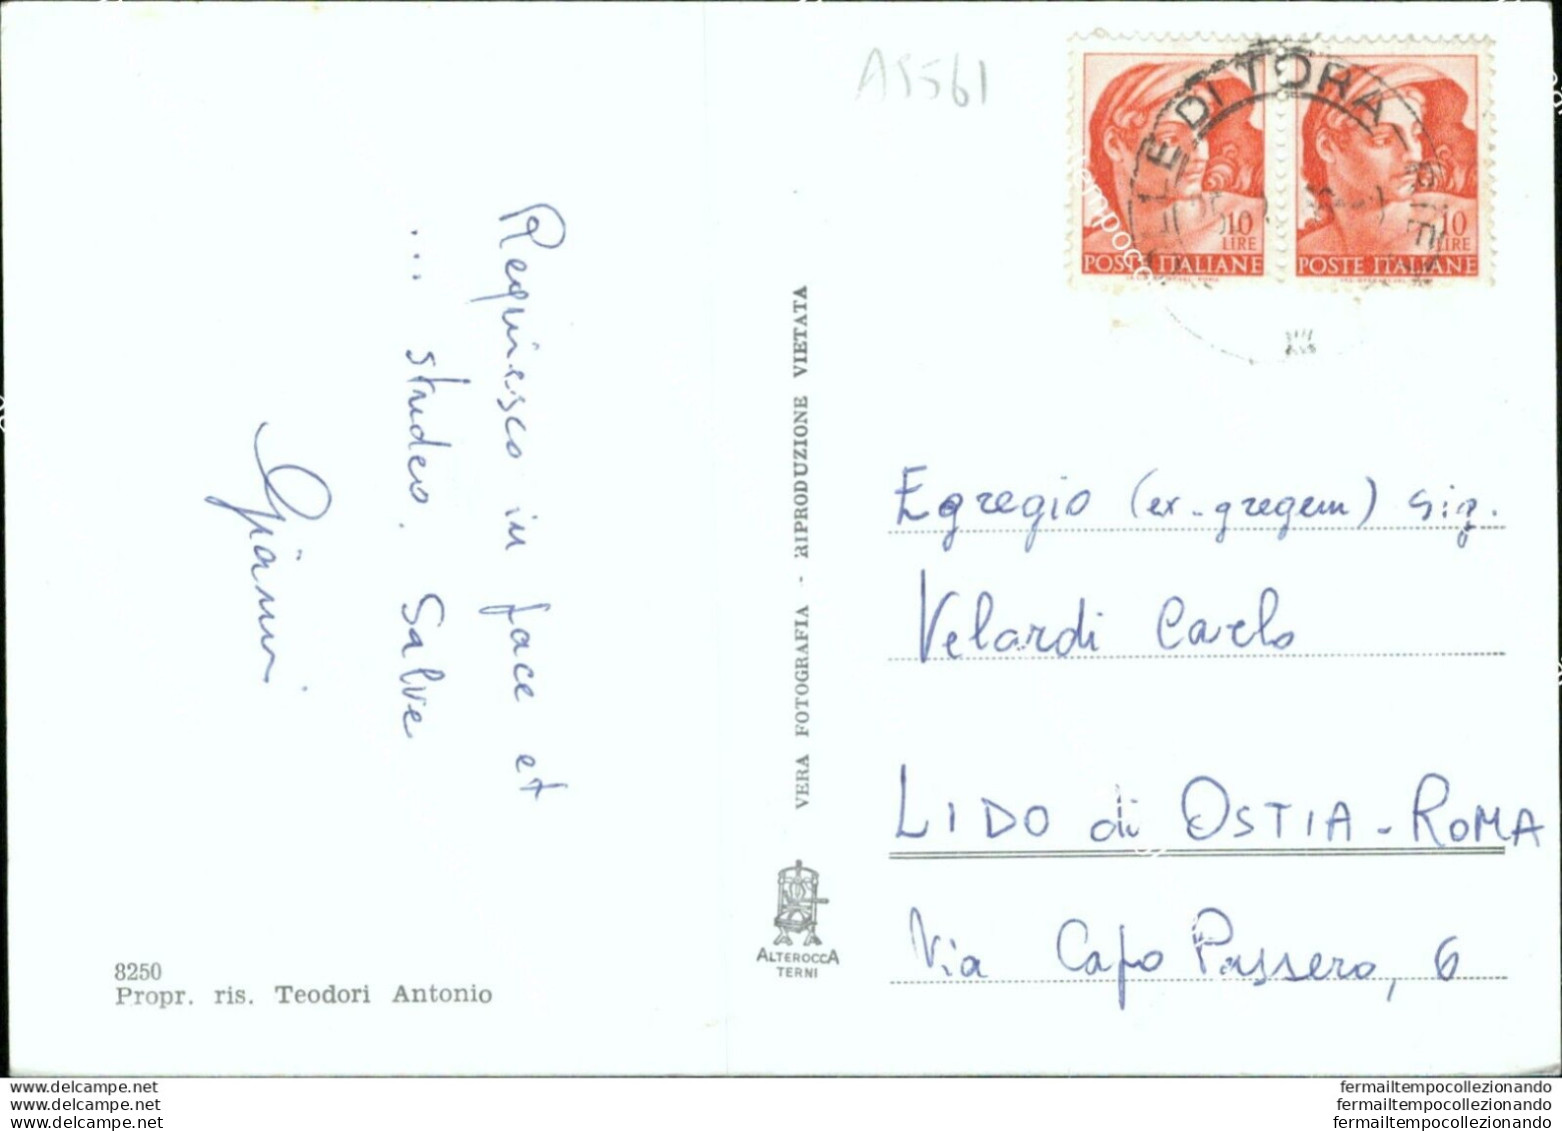 A5561
COLLE DI TORA - RIETI
10
LIRE
POSTE ITALIANE
10
LIRE
POSTE ITALIANE
Requiesco in pace et
... studeo. Salve
Gianni.
VERA FOTOGRAFIA - RIPRODUZIONE VIETATA
Egregio (ex-gregem) Sig.
Velardi Carlo
LIDO di OSTIA - ROMA
Via Capo Passero, 6
ALTEROCCA
TERNI
8250
Propr. ris. Teodori Antonio
www.delcampe.net
www.delcampe.net
www.delcampe.net
fermailtempocollezionando
fermailtempocollezionando
fermailtempocollezionando